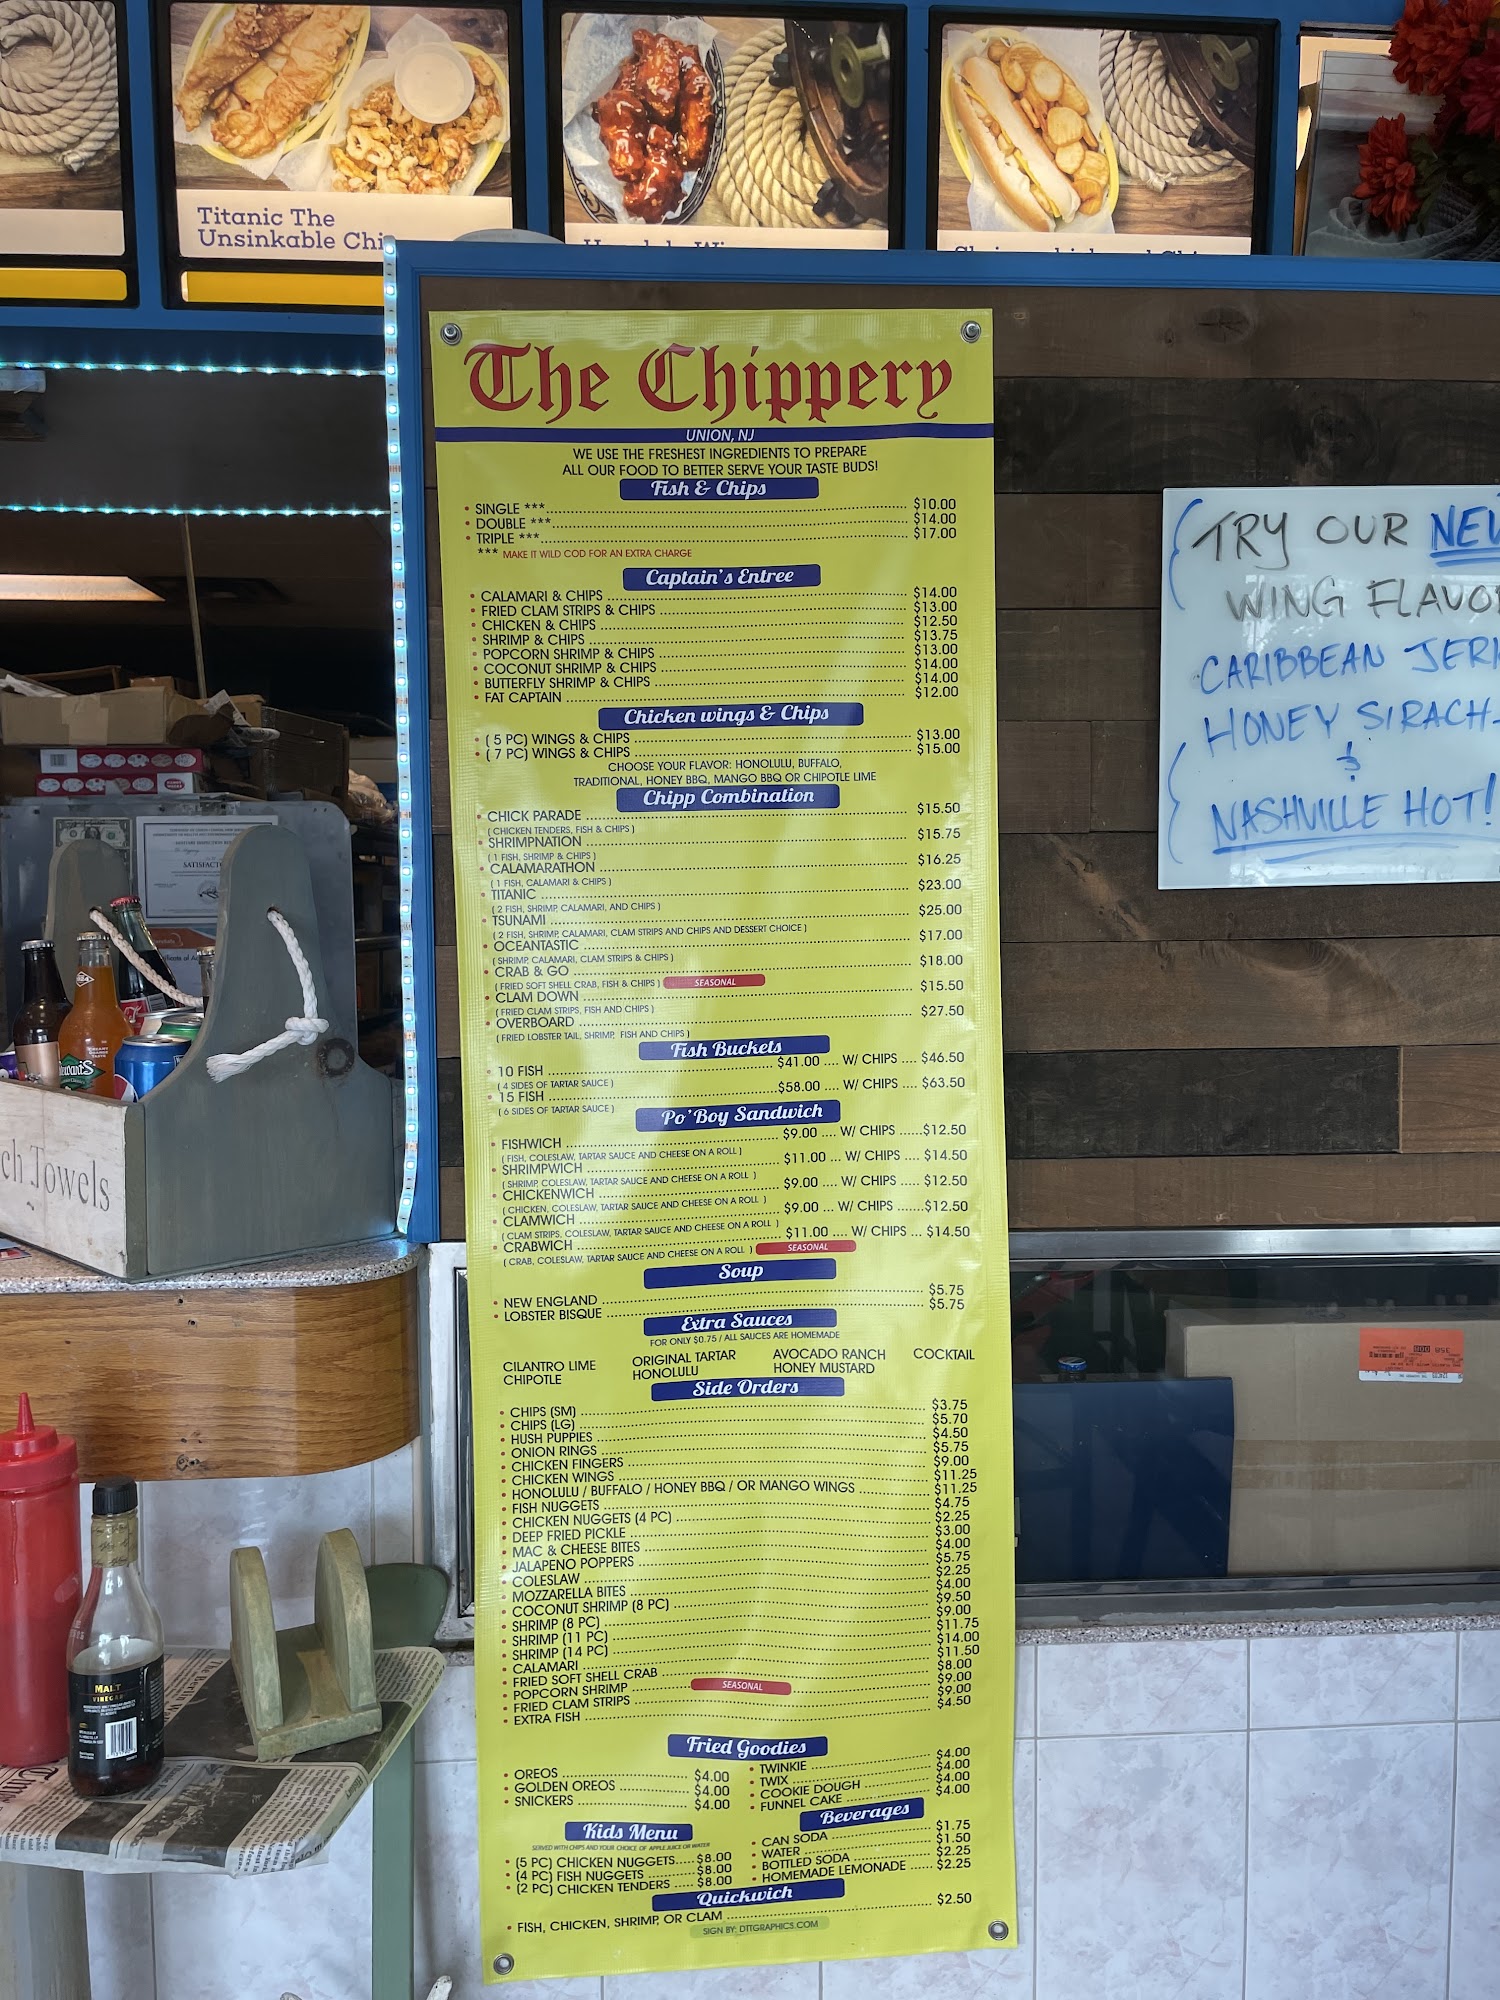 Titanic The
Unsinkable Chi
The Chippery
UNION, NJ
WE USE THE FRESHEST INGREDIENTS TO PREPARE
ALL OUR FOOD TO BETTER SERVE YOUR TASTE BUDS!
Fish & Chips
• SINGLE *** $10.00
• DOUBLE *** $14.00
• TRIPLE *** $17.00
*** MAKE IT WILD COD FOR AN EXTRA CHARGE
Captain's Entree
• CALAMARI & CHIPS $14.00
• FRIED CLAM STRIPS & CHIPS $13.00
• CHICKEN & CHIPS $12.50
• SHRIMP & CHIPS $13.75
• POPCORN SHRIMP & CHIPS $13.00
• COCONUT SHRIMP & CHIPS $14.00
• BUTTERFLY SHRIMP & CHIPS $14.00
• FAT CAPTAIN $12.00
Chicken wings & Chips
• ( 5 PC) WINGS & CHIPS $13.00
• ( 7 PC) WINGS & CHIPS $15.00
CHOOSE YOUR FLAVOR: HONOLULU, BUFFALO,
TRADITIONAL, HONEY BBQ, MANGO BBQ OR CHIPOTLE LIME
Chipp Combination
• CHICK PARADE $15.50
( CHICKEN TENDERS, FISH & CHIPS )
• SHRIMPNATION $15.75
( 1 FISH, SHRIMP & CHIPS )
• CALAMARATHON $16.25
( 1 FISH, CALAMARI & CHIPS )
• TITANIC $23.00
( 2 FISH, SHRIMP, CALAMARI, AND CHIPS )
• TSUNAMI $25.00
( 2 FISH, SHRIMP, CALAMARI, CLAM STRIPS AND CHIPS AND DESSERT CHOICE )
• OCEANTASTIC $17.00
( SHRIMP, CALAMARI, CLAM STRIPS & CHIPS )
• CRAB & GO $18.00
( FRIED SOFT SHELL CRAB, FISH & CHIPS ) SEASONAL
• CLAM DOWN $15.50
( FRIED CLAM STRIPS, FISH AND CHIPS )
• OVERBOARD $27.50
( FRIED LOBSTER TAIL, SHRIMP, FISH AND CHIPS )
Fish Buckets
• 10 FISH $41.00 .... W/ CHIPS .... $46.50
( 4 SIDES OF TARTAR SAUCE )
• 15 FISH $58.00 .... W/ CHIPS .... $63.50
( 6 SIDES OF TARTAR SAUCE )
Po'Boy Sandwich
• FISHWICH $9.00 .... W/ CHIPS ......$12.50
( FISH, COLESLAW, TARTAR SAUCE AND CHEESE ON A ROLL )
• SHRIMPWICH $11.00 ... W/ CHIPS .... $14.50
( SHRIMP, COLESLAW, TARTAR SAUCE AND CHEESE ON A ROLL )
• CHICKENWICH $9.00 .... W/ CHIPS .... $12.50
( CHICKEN, COLESLAW, TARTAR SAUCE AND CHEESE ON A ROLL )
• CLAMWICH $9.00 ... W/ CHIPS ......$12.50
( CLAM STRIPS, COLESLAW, TARTAR SAUCE AND CHEESE ON A ROLL )
• CRABWICH $11.00 .... W/ CHIPS ... $14.50
( CRAB, COLESLAW, TARTAR SAUCE AND CHEESE ON A ROLL ) SEASONAL
Soup
• NEW ENGLAND $5.75
• LOBSTER BISQUE $5.75
Extra Sauces
FOR ONLY $0.75 / ALL SAUCES ARE HOMEMADE
CILANTRO LIME ORIGINAL TARTAR AVOCADO RANCH COCKTAIL
CHIPOTLE HONOLULU HONEY MUSTARD
Side Orders
• CHIPS (SM) $3.75
• CHIPS (LG) $5.70
• HUSH PUPPIES $4.50
• ONION RINGS $5.75
• CHICKEN FINGERS $9.00
• CHICKEN WINGS $11.25
• HONOLULU / BUFFALO / HONEY BBQ / OR MANGO WINGS $11.25
• FISH NUGGETS $4.75
• CHICKEN NUGGETS (4 PC) $2.25
• DEEP FRIED PICKLE $3.00
• MAC & CHEESE BITES $4.00
• JALAPENO POPPERS $5.75
• COLESLAW $2.25
• MOZZARELLA BITES $4.00
• COCONUT SHRIMP (8 PC) $9.50
• SHRIMP (8 PC) $9.00
• SHRIMP (11 PC) $11.75
• SHRIMP (14 PC) $14.00
• CALAMARI $11.50
• FRIED SOFT SHELL CRAB $8.00
• POPCORN SHRIMP SEASONAL $9.00
• FRIED CLAM STRIPS $9.00
• EXTRA FISH $4.50
Fried Goodies
• OREOS $4.00
• GOLDEN OREOS $4.00
• SNICKERS $4.00
• TWINKIE $4.00
• TWIX $4.00
• COOKIE DOUGH $4.00
• FUNNEL CAKE $4.00
Kids Menu
SERVED WITH CHIPS AND YOUR CHOICE OF APPLE JUICE OR WATER
• (5 PC) CHICKEN NUGGETS $8.00
• (4 PC) FISH NUGGETS $8.00
• (2 PC) CHICKEN TENDERS $8.00
Beverages
• CAN SODA $1.75
• WATER $1.50
• BOTTLED SODA $2.25
• HOMEMADE LEMONADE $2.25
Quickwich
• FISH, CHICKEN, SHRIMP, OR CLAM $2.50
SIGN BY: DTTGRAPHICS.COM
TRY OUR NEW
WING FLAVO
CARIBBEAN JERK
HONEY SIRACH-
&
NASHVILLE HOT!
ch Towels
MALT
VINEGAR